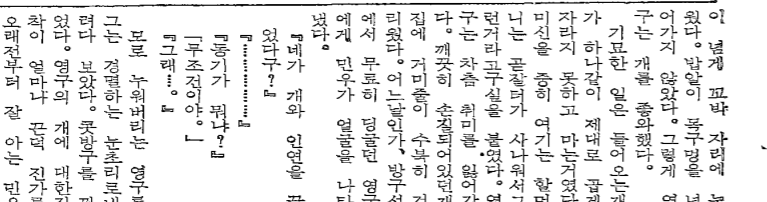 이 넘게 꼬박 자리에 누
웠다. 밥알이 목구멍을 넘
어가지 않았다. 그렇게 영
구는 개를 좋아했다.
기묘한 일은 들어오는 개
가 하나같이 제대로 곱게
자라지 못하고 마는거였다.
미신을 중히 여기는 할머
니는 곧잘 터가 사나워서 그
런거라고 구실을 붙였다. 영
구는 차츰 취미를 잃어갔
다. 깨끗히 손질되어있던 개
집에 거미줄이 수북히 걸
리웠다. 어느날인가, 방구석
에서 무료히 딩굴던 영구
에게 민우가 얼굴을 나타
냈다.
『네가 개와 인연을 끊
었다구?』
『…………』
『동기가 뭐냐?』
「무조건이야。」
『그래…。』
모로 누워버리는 영구를
그는 경멸하는 눈초리로 내
려다 보았다. 콧방구를 뀌
었다. 영구의 개에 대한 집
착이 얼마나 끈덕진가를
오래전부터 잘 아는 민우